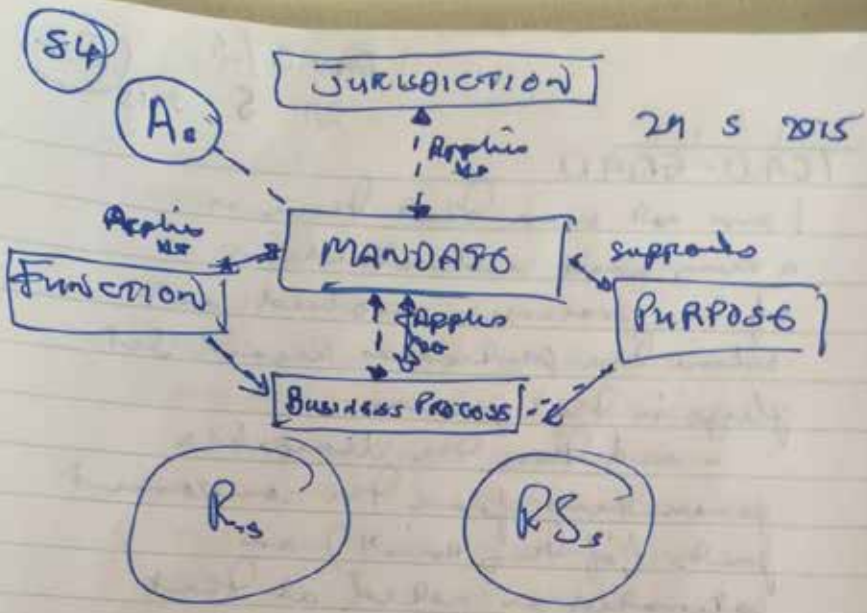 S4
JURISDICTION
As
Applies
to
29 5 2015
Applies
to
MANDATE
supports
FUNCTION
PURPOSE
Applies
to
BUSINESS PROCESS
Rs
RSs